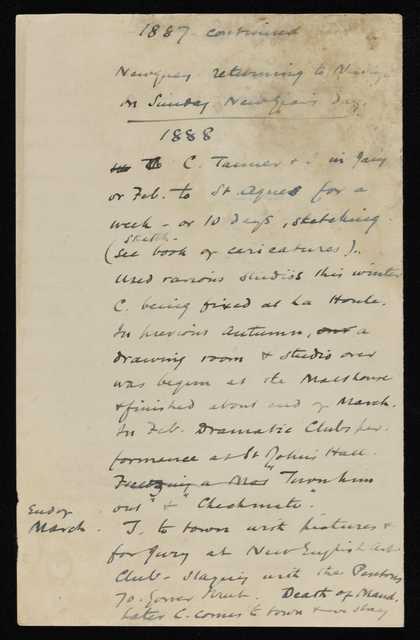 1887 continued
Newquay returning to
on Sunday New Year's Day.
1888
C. Tanner & I in Jany
or Feb. to St Agnes for a
week - or 10 days, sketching.
(see sketch-book of caricatures).
Used various studios this winter
C. being fixed at
In previous autumn, a
drawing room & studio over
was begun at the Malthouse
& finished about end of March.
In Feb. Dramatic Clubs per-
formance at St John's Hall.
"Turn him
out" & "Checkmate".
End of
March. J. to town with pictures &
for jury at New English Art
Club - Staying with the
70. Gower Street. Death of Maud.
Later C. comes to town & we stay